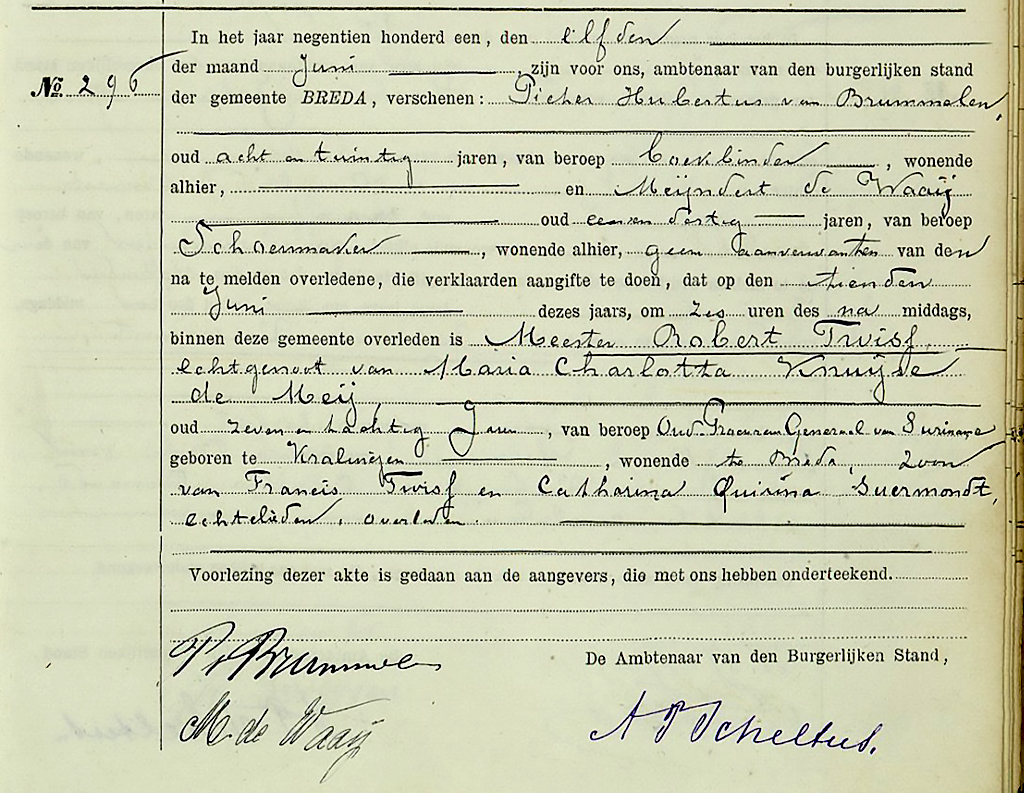 In het jaar negentien honderd een, den elfden
No. 296
der maand Juni, zijn voor ons, ambtenaar van den burgerlijken stand
der gemeente BREDA, verschenen: Pieter Hubertus van Brummelen,
oud acht en twintig jaren, van beroep boekbinder, wonende
alhier, en Meijndert de Waaij
oud een en dertig jaren, van beroep
Schoenmaker, wonende alhier, geen aanverwanten van den
na te melden overledene, die verklaarden aangifte te doen, dat op den tienden
Juni dezes jaars, om zes uren des na middags,
binnen deze gemeente overleden is Meester Robert Twisf,
echtgenoot van Maria Charlotta Knuijse
de Meij,
oud zeven en tachtig Jaren, van beroep Oud-Procureur Generaal van Suriname
geboren te Kralingen, wonende te Breda, Zoon
van Francis Twisf en Catharina Quirina Suermondt,
echtelieden, overleden.
Voorlezing dezer akte is gedaan aan de aangevers, die met ons hebben onderteekend.
P v Brummelen
De Ambtenaar van den Burgerlijken Stand,
M. de Waaij
A P Scheltus.